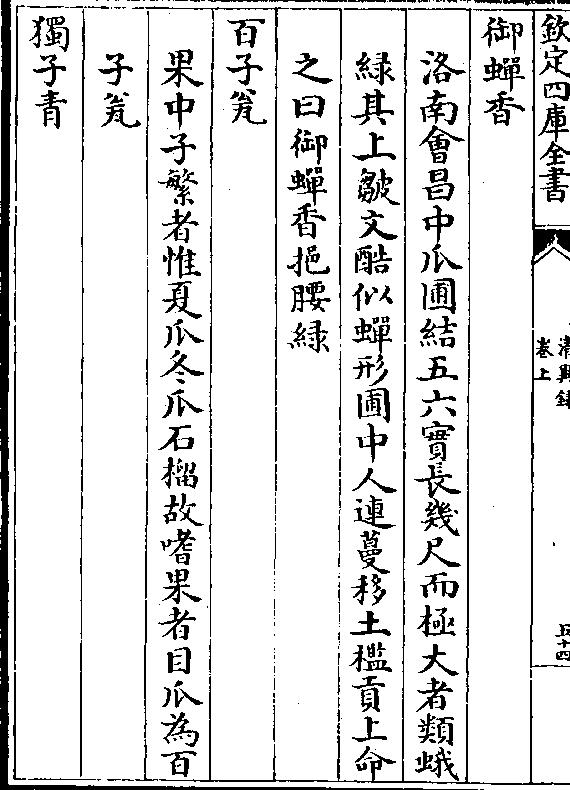 欽定四庫全書
卷上
御蟬香
洛南會昌中瓜圃結五六實長幾尺而極大者類蛾
緑其上皺文酷似蟬形圃中人連蔓移土檻貢上命
之曰御蟬香挹腰緑
百子瓮
果中子繁者惟夏瓜冬瓜石榴故嗜果者目瓜為百
子瓮
獨子青